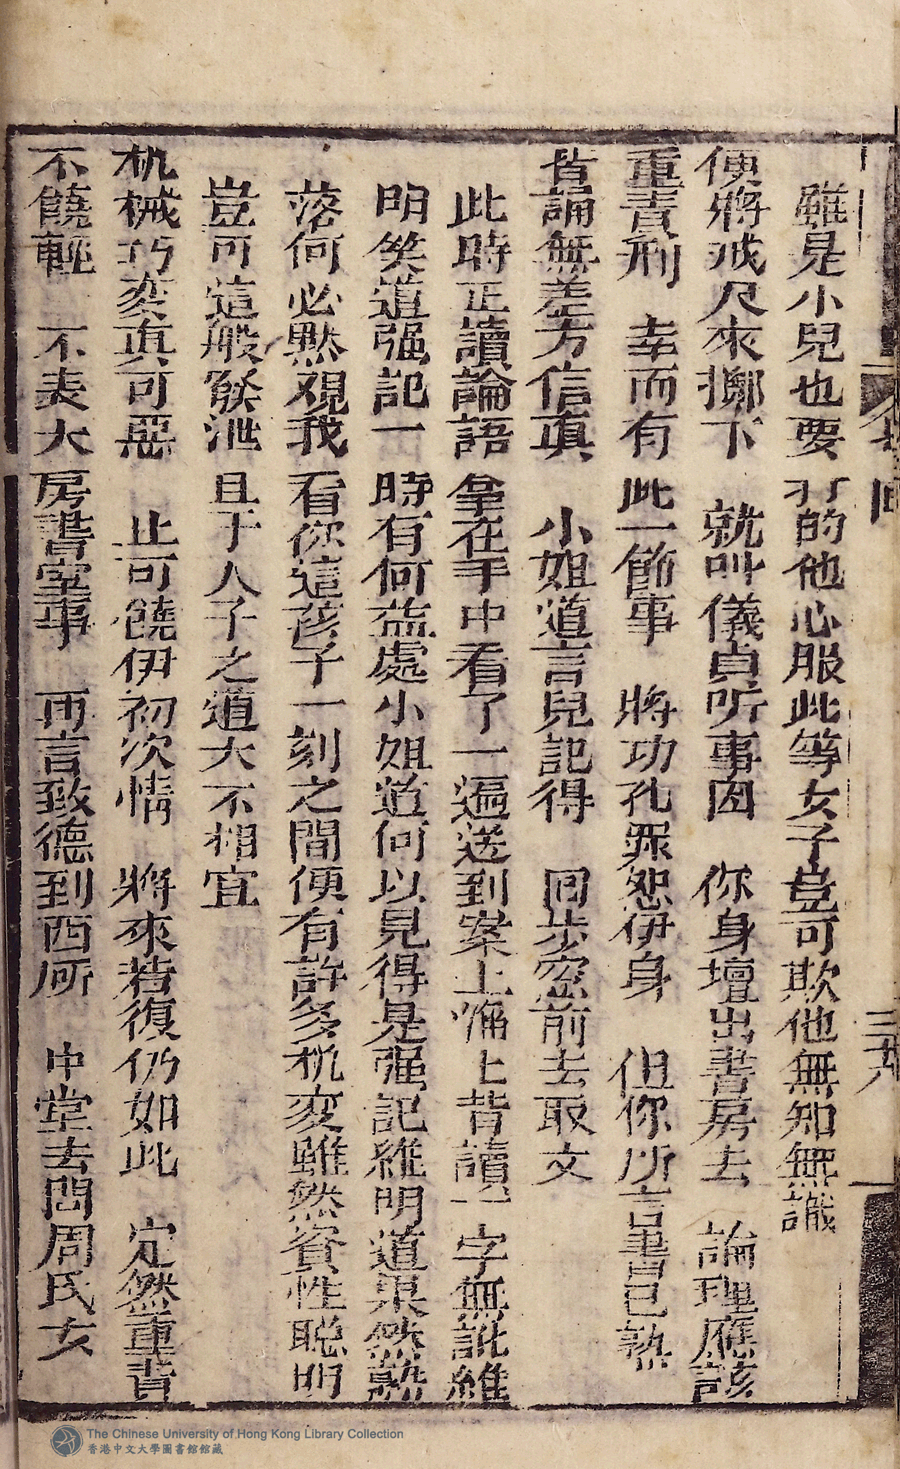 雖是小兒也要打的他心服此等女子豈可欺他無知無識
便將戒尺來擲下　就叫儀貞听事因　你身壇出書房去　論理應該
重責刑　幸而有此一節事　將功孔罪恕伊身　但你所言書已熟
背誦無差方信真　小姐道言兒記得　回步窓前去取文
此時正讀論語拿在手中看了一遍送到案上俻上背讀一字無訛維
明笑道强記一時有何益處小姐道何以見得是强記維明道果然熟
落何必黙觀我看你這孩子一刻之間便有許多机变雖然資性聪明
豈可這般發泄且于人子之道大不相宜
机械巧变真可惡　止可饒伊初次情　將來若復仍如此　定然重責
不饒輕　不表大房書室事　再言致德到西所　中堂去問周氏女
三十八
The Chinese University of Hong Kong Library Collection
香港中文大學圖書館館藏